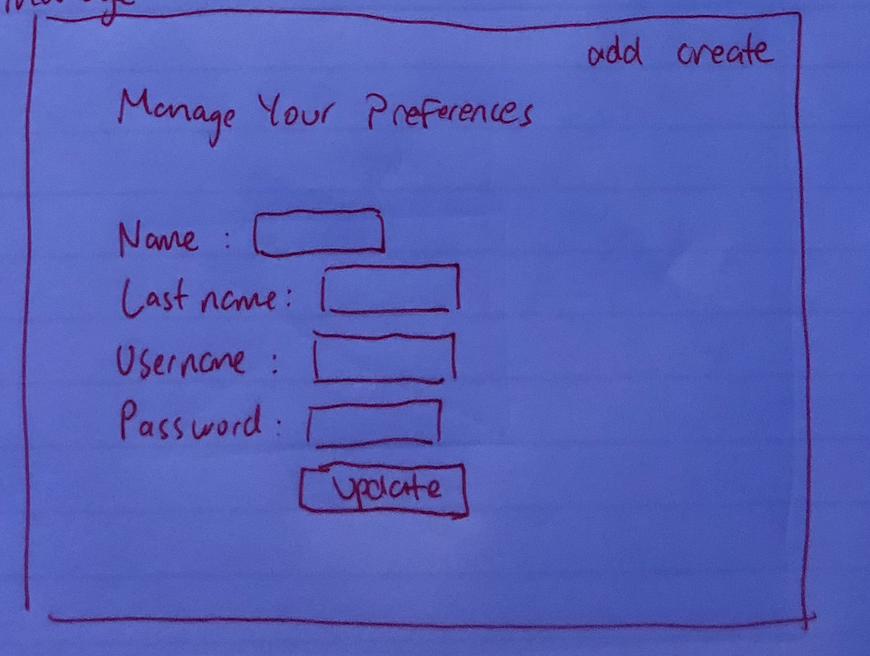 add create
Manage Your Preferences
Name :
Last name:
Username :
Password :
Update